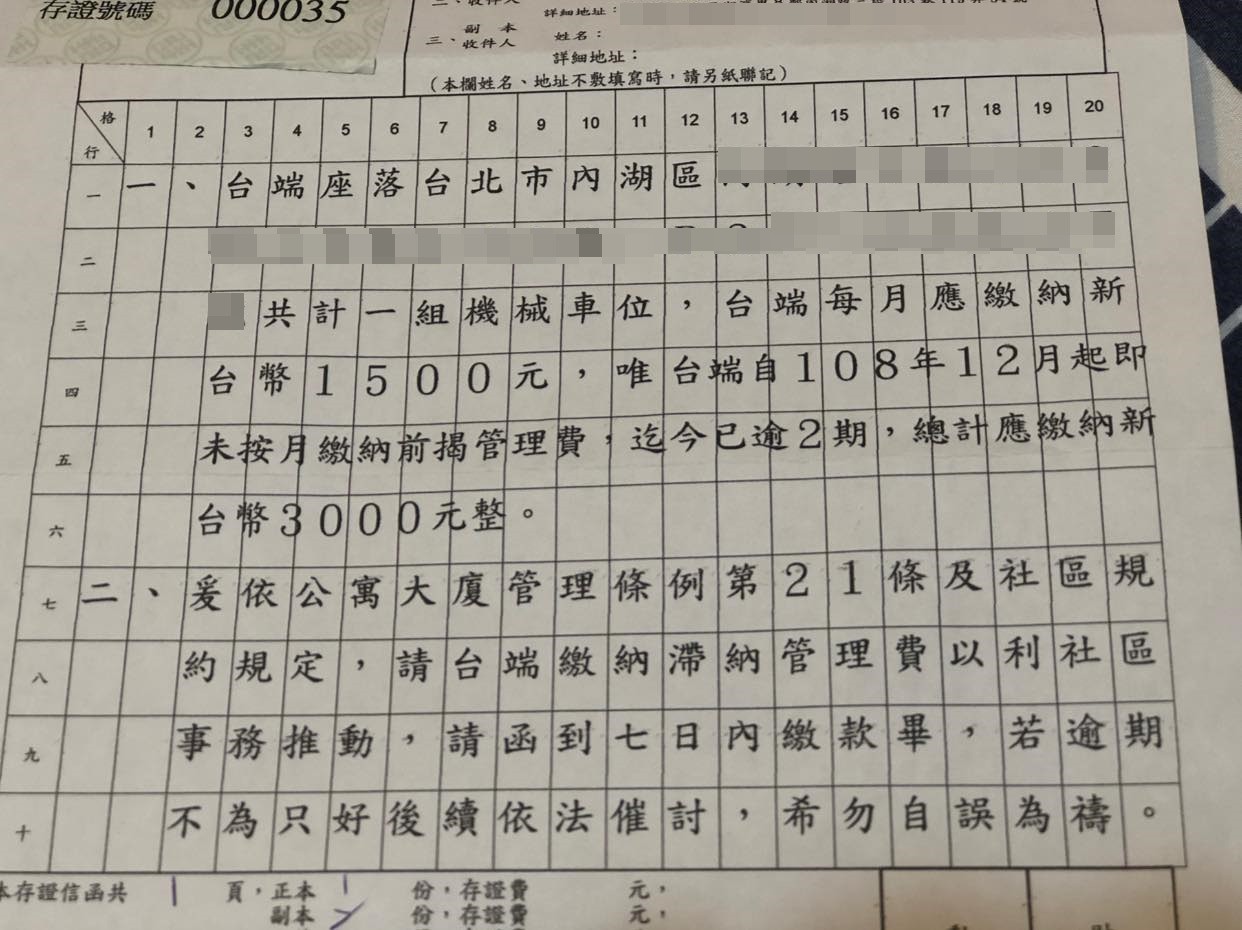 存證號碼 000035
三、收件人
詳細地址：
副本
三、收件人 姓名：
詳細地址：
（本欄姓名、地址不敷填寫時，請另紙聯記）
格 1 2 3 4 5 6 7 8 9 10 11 12 13 14 15 16 17 18 19 20
行
一 一、台端座落台北市內湖區
二
三 共計一組機械車位，台端每月應繳納新
四 台幣1500元，唯台端自108年12月起即
五 未按月繳納前揭管理費，迄今已逾2期，總計應繳納新
六 台幣3000元整。
七 二、爰依公寓大廈管理條例第21條及社區規
八 約規定，請台端繳納滯納管理費以利社區
九 事務推動，請函到七日內繳款畢，若逾期
十 不為只好後續依法催討，希勿自誤為禱。
本存證信函共 1 頁，正本 1 份，存證費 元，
副本 份，存證費 元，